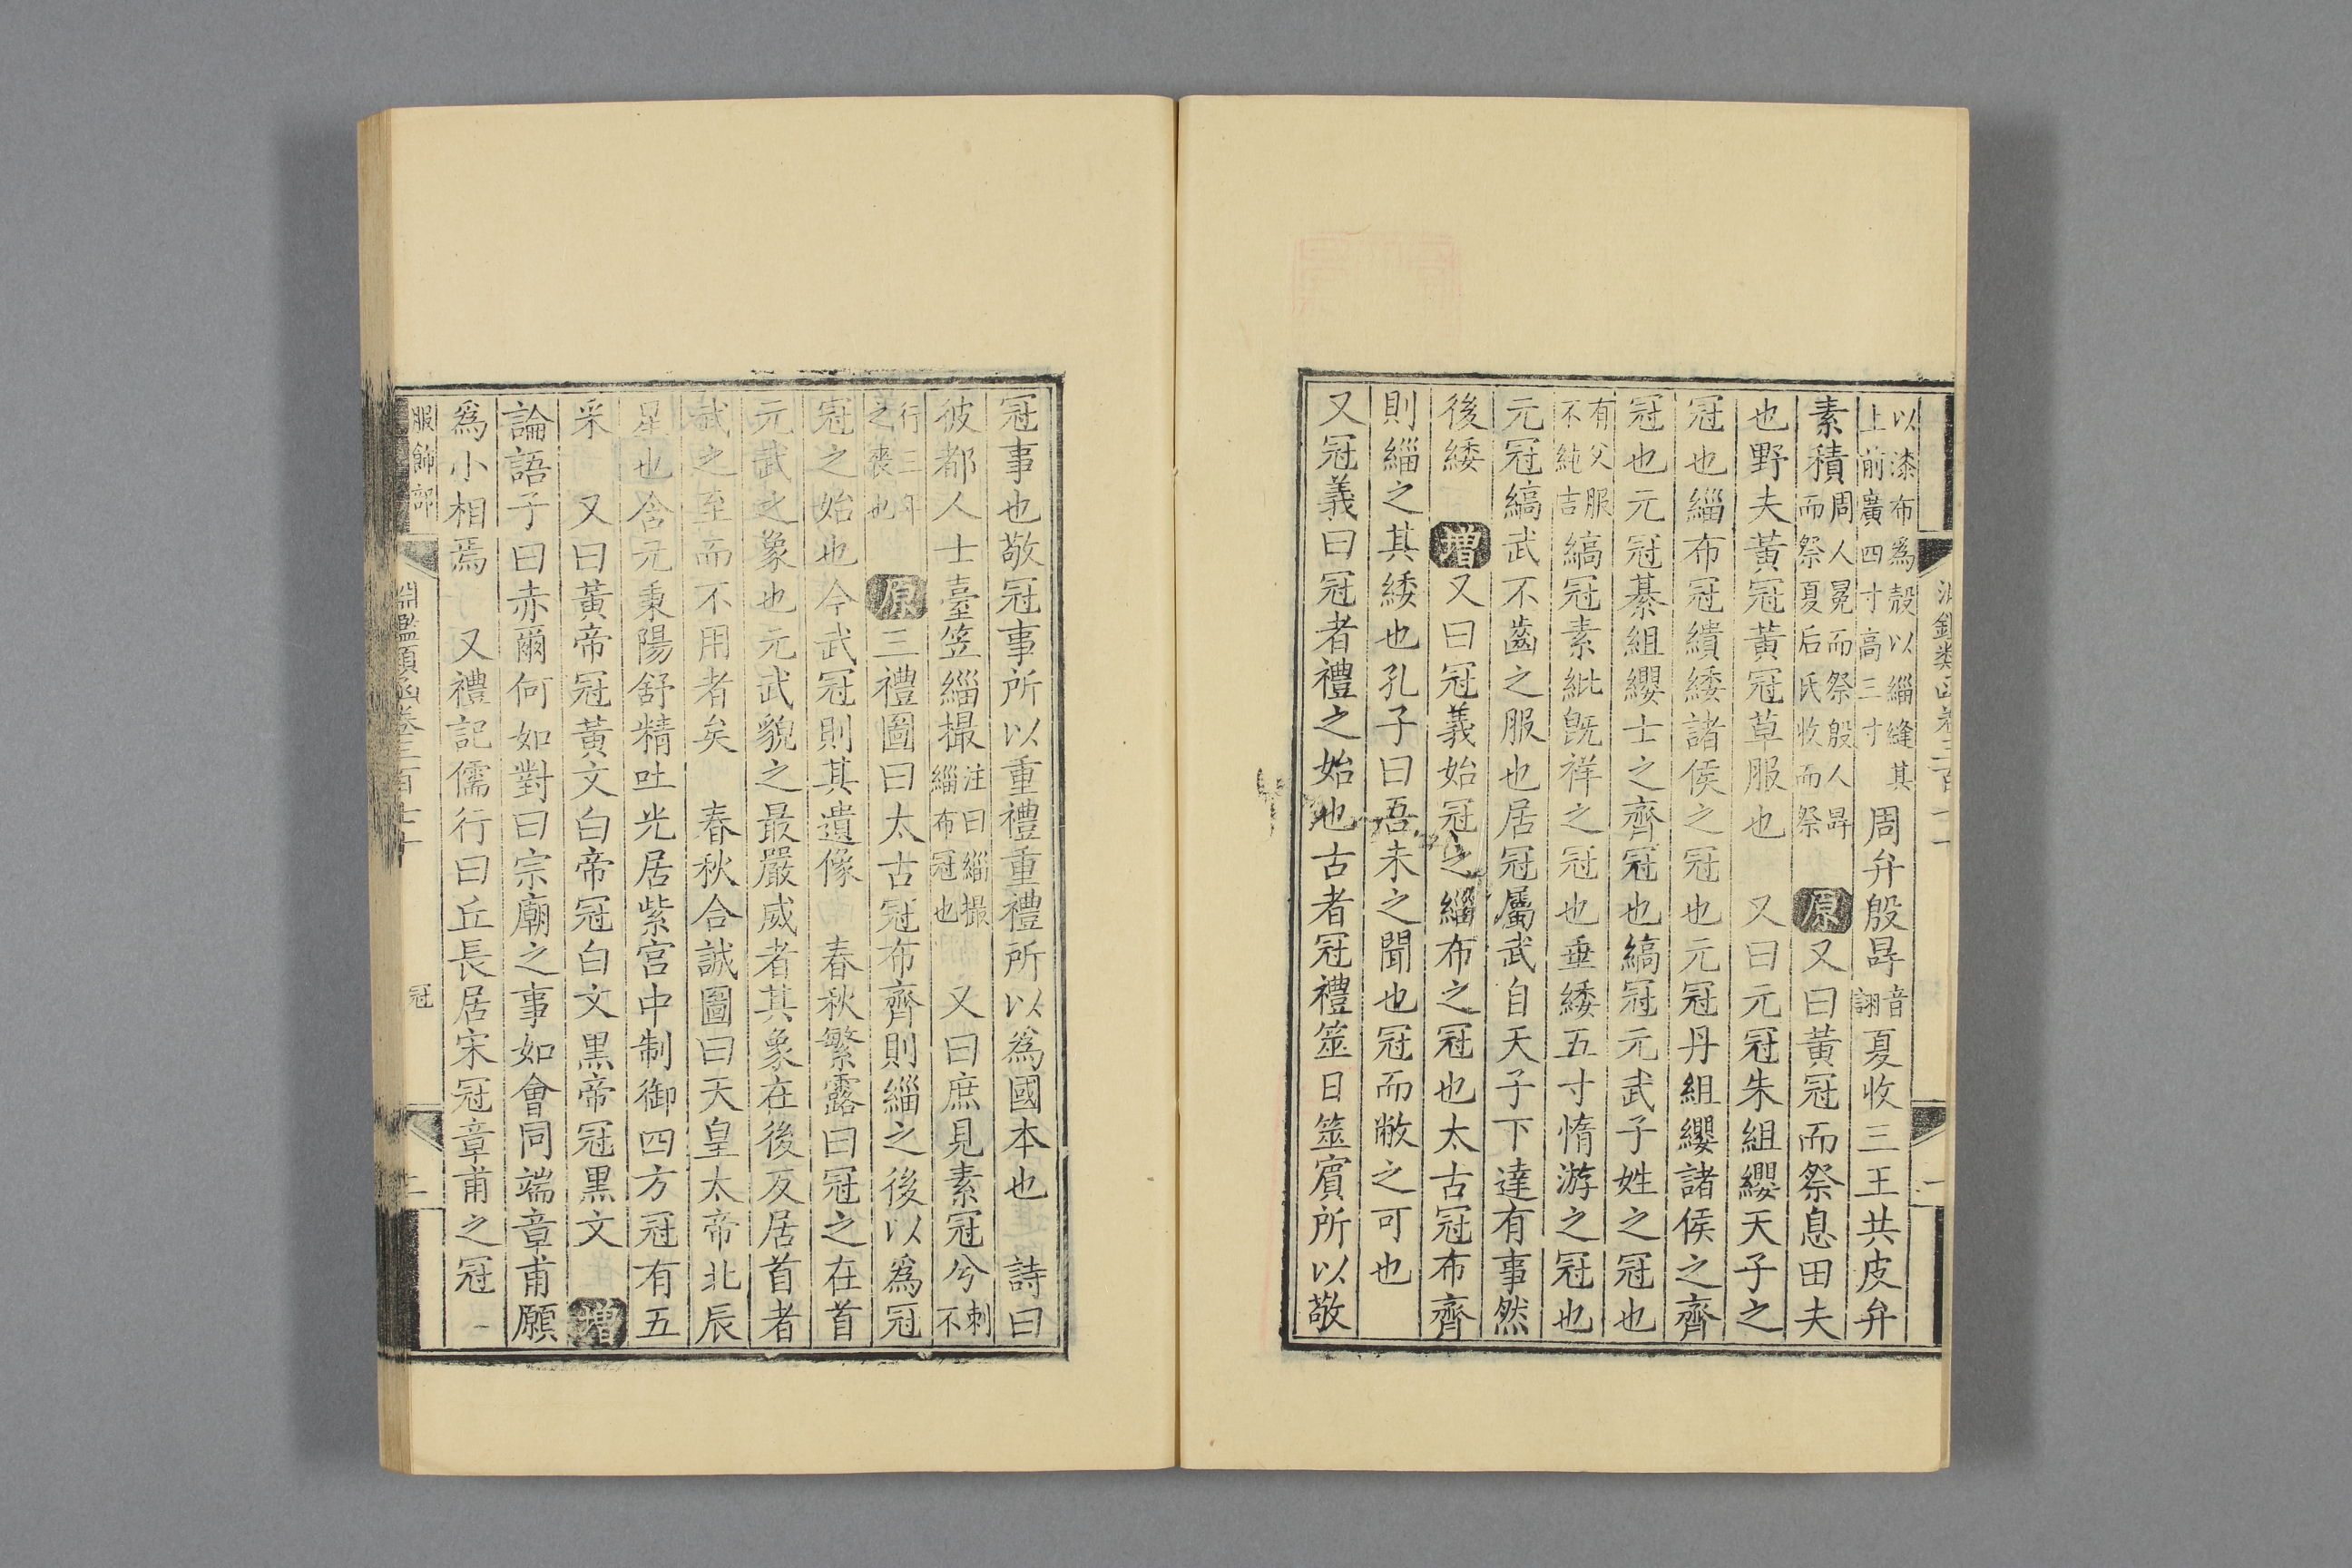 以漆布爲殼以緇縫其
上前廣四寸高三寸
周弁殷冔
音
詡
夏收三王共皮弁
素積
周人冕而祭殷人冔
而祭夏后氏收而祭
原又曰黃冠而祭息田夫
也野夫黃冠黃冠草服也 又曰元冠朱組纓天子之
冠也緇布冠繢緌諸侯之冠也元冠丹組纓諸侯之齊
冠也元冠綦組纓士之齊冠也縞冠元武子姓之冠也
有父服
不純吉
縞冠素紕旣祥之冠也垂緌五寸惰游之冠也
元冠縞武不齒之服也居冠屬武自天子下達有事然
後緌 增又曰冠義始冠之緇布之冠也太古冠布齊
則緇之其緌也孔子曰吾未之聞也冠而敝之可也
又冠義曰冠者禮之始也古者冠禮筮日筮賓所以敬
冠事也敬冠事所以重禮重禮所以爲國本也 詩曰
彼都人士臺笠緇撮
注曰緇撮
緇布冠也
又曰庶見素冠兮
刺不
行三年
之喪也
原三禮圖曰太古冠布齊則緇之後以爲冠
冠之始也今武冠則其遺像 春秋繁露曰冠之在首
元武之象也元武貌之最嚴威者其象在後反居首者
武之至而不用者矣 春秋合誠圖曰天皇太帝北辰
星也含元秉陽舒精吐光居紫宮中制御四方冠有五
采 又曰黃帝冠黃文白帝冠白文黑帝冠黑文 增
論語子曰赤爾何如對曰宗廟之事如會同端章甫願
爲小相焉 又禮記儒行曰丘長居宋冠章甫之冠
服飾部 淵鑑類函卷三百七十 冠 二